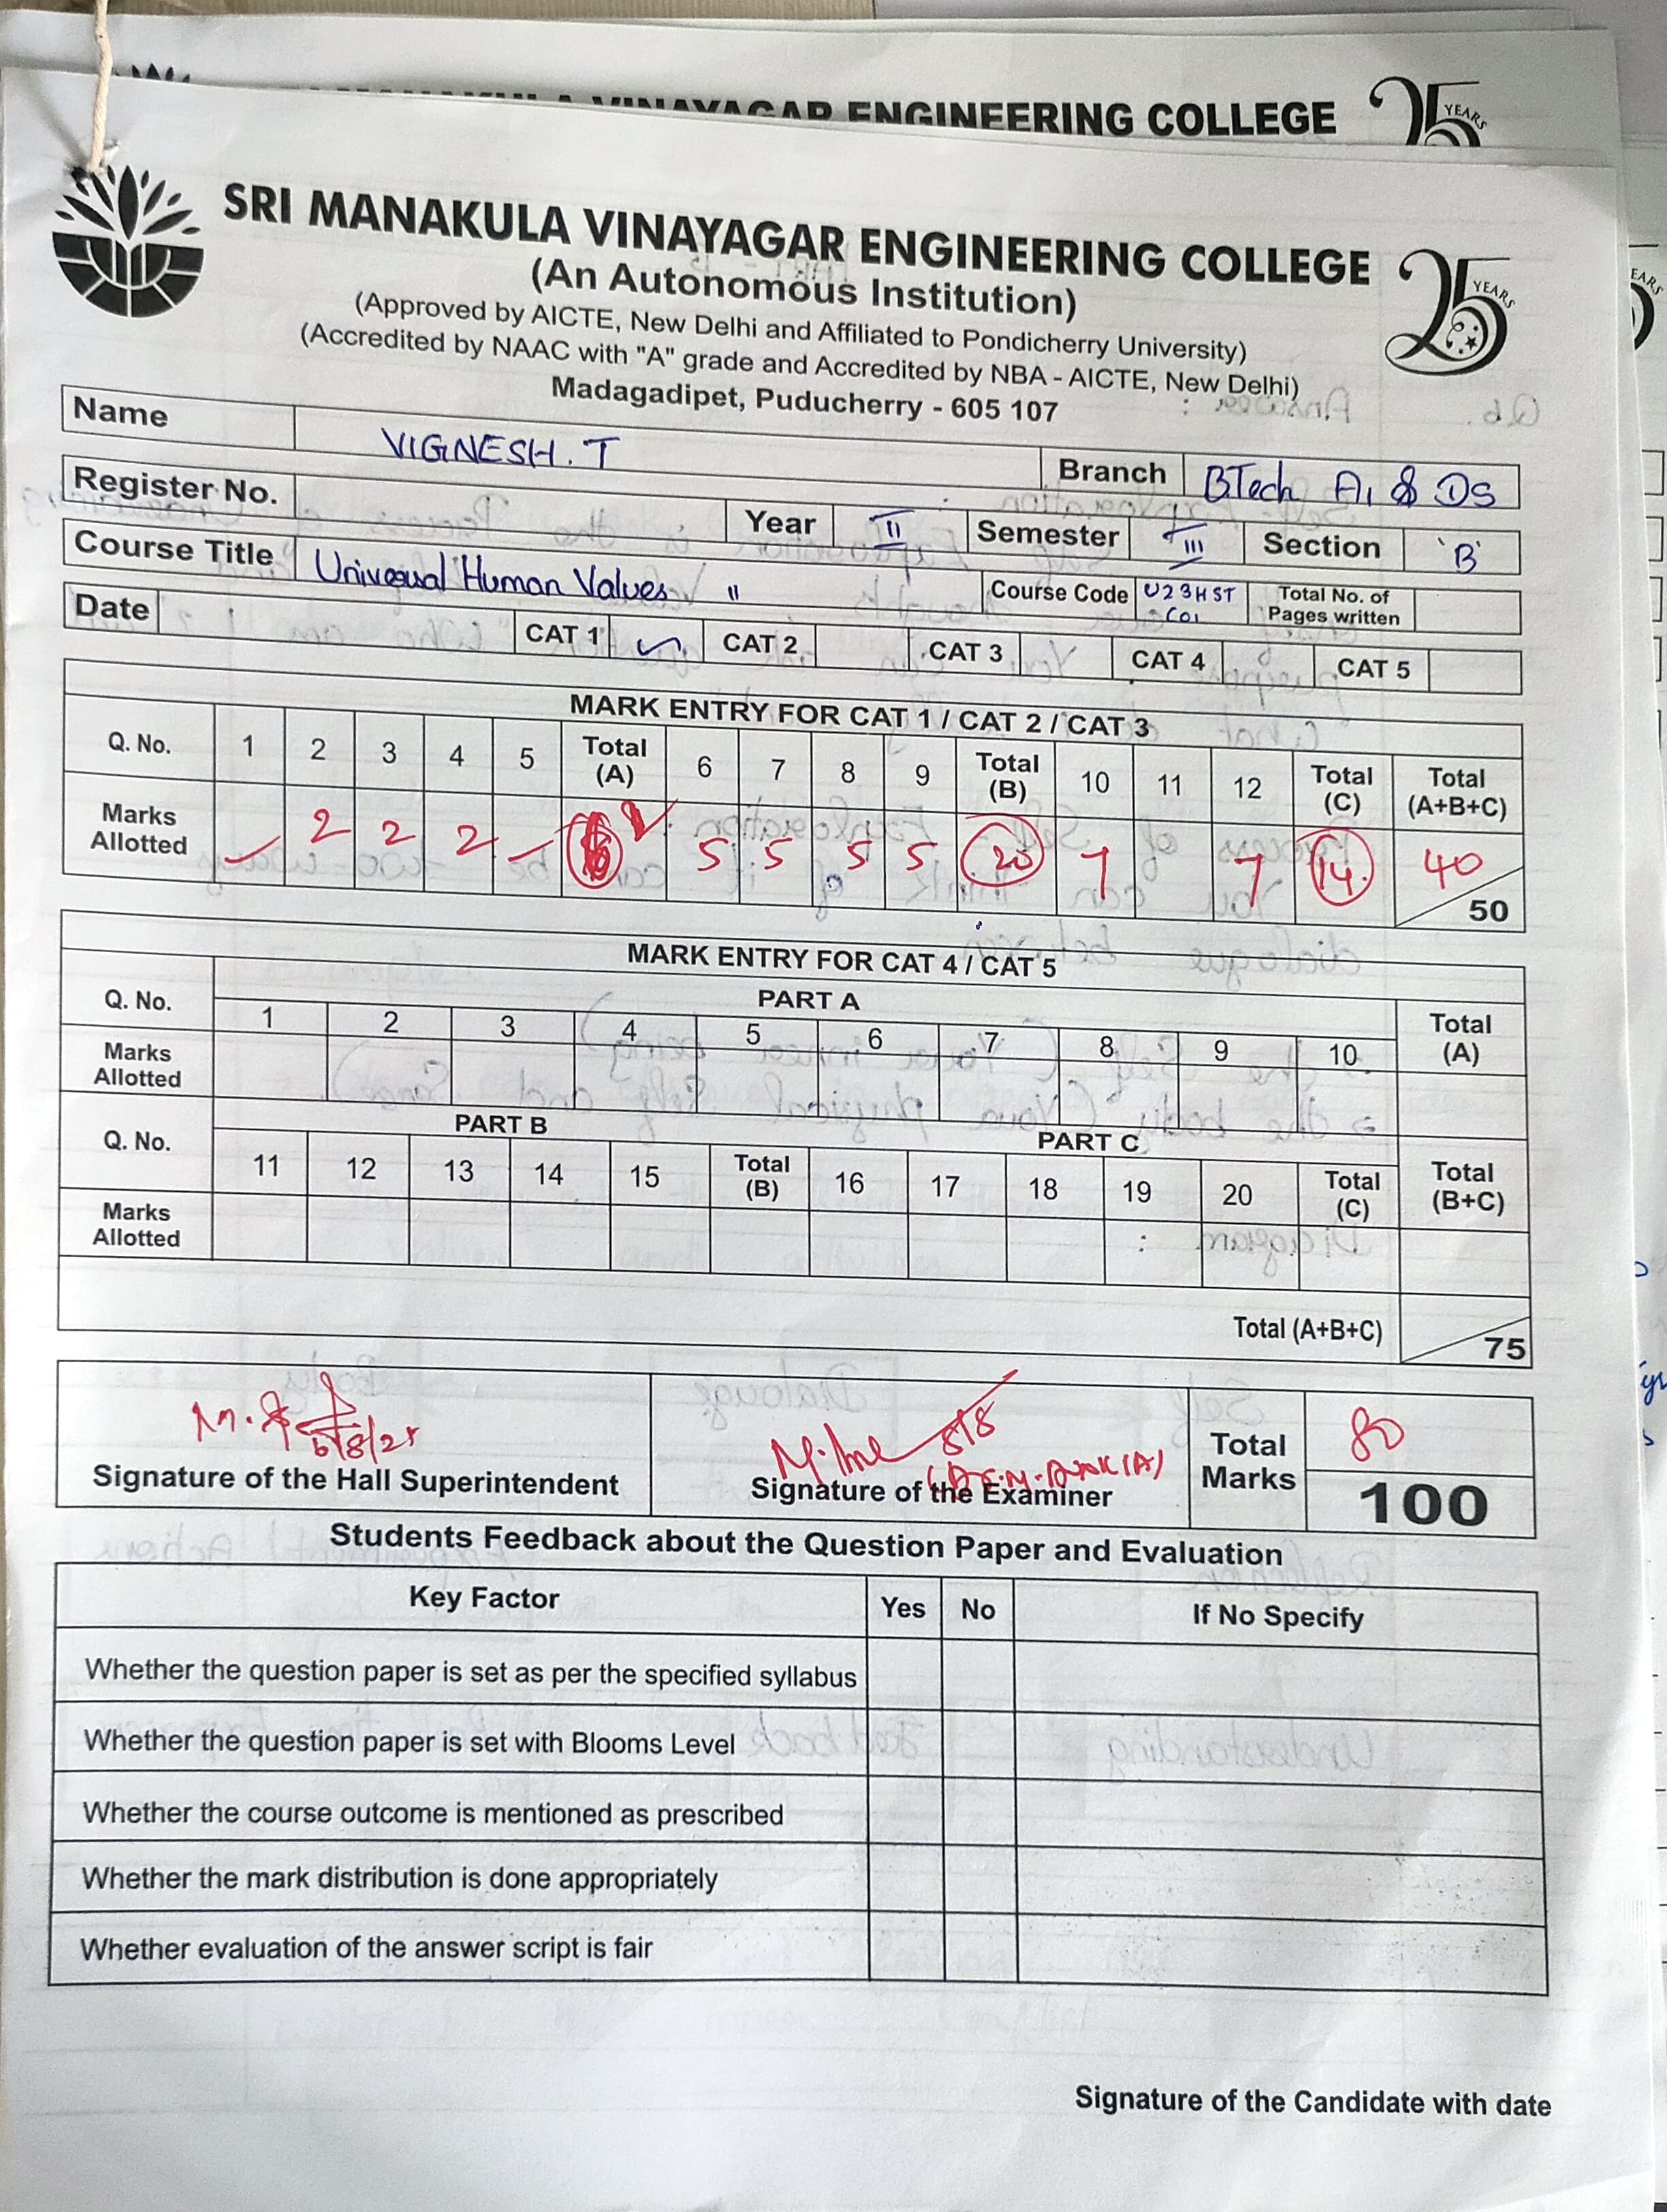 ENGINEERING COLLEGE
25 YEARS
SRI MANAKULA VINAYAGAR ENGINEERING COLLEGE
(An Autonomous Institution)
25 YEARS
(Approved by AICTE, New Delhi and Affiliated to Pondicherry University)
(Accredited by NAAC with "A" grade and Accredited by NBA - AICTE, New Delhi)
Madagadipet, Puducherry - 605 107
Name VIGNESH. T Branch BTech AI & DS
Register No. Year II Semester III Section 'B'
Course Title Universal Human Values " Course Code U23HST C01 Total No. of Pages written
Date CAT 1 CAT 2 CAT 3 CAT 4 CAT 5
MARK ENTRY FOR CAT 1 / CAT 2 / CAT 3
Q. No. 1 2 3 4 5 Total (A) 6 7 8 9 Total (B) 10 11 12 Total (C) Total (A+B+C)
Marks Allotted - 2 2 2 - 6 5 5 5 5 20 7 7 14 40 / 50
MARK ENTRY FOR CAT 4 / CAT 5
PART A
Q. No. 1 2 3 4 5 6 7 8 9 10 Total (A)
Marks Allotted
PART B PART C
Q. No. 11 12 13 14 15 Total (B) 16 17 18 19 20 Total (C) Total (B+C)
Marks Allotted
Total (A+B+C) 75
5/8/25
8/8
Signature of the Hall Superintendent Signature of the Examiner Total Marks 80
100
Students Feedback about the Question Paper and Evaluation
Key Factor Yes No If No Specify
Whether the question paper is set as per the specified syllabus
Whether the question paper is set with Blooms Level
Whether the course outcome is mentioned as prescribed
Whether the mark distribution is done appropriately
Whether evaluation of the answer script is fair
Signature of the Candidate with date